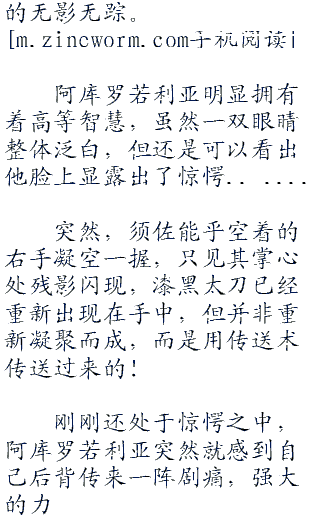 的无影无踪。
[m.zincworm.com手机阅读i
阿库罗若利亚明显拥有
着高等智慧，虽然一双眼睛
整体泛白，但还是可以看出
他脸上显露出了惊愕.. .....
突然，须佐能乎空着的
右手凝空一握，只见其掌心
处残影闪现，漆黑太刀已经
重新出现在手中，但并非重
新凝聚而成，而是用传送术
传送过来的!
刚刚还处于惊愕之中，
阿库罗若利亚突然就感到自
己后背传来一阵剧痛，强大
的力